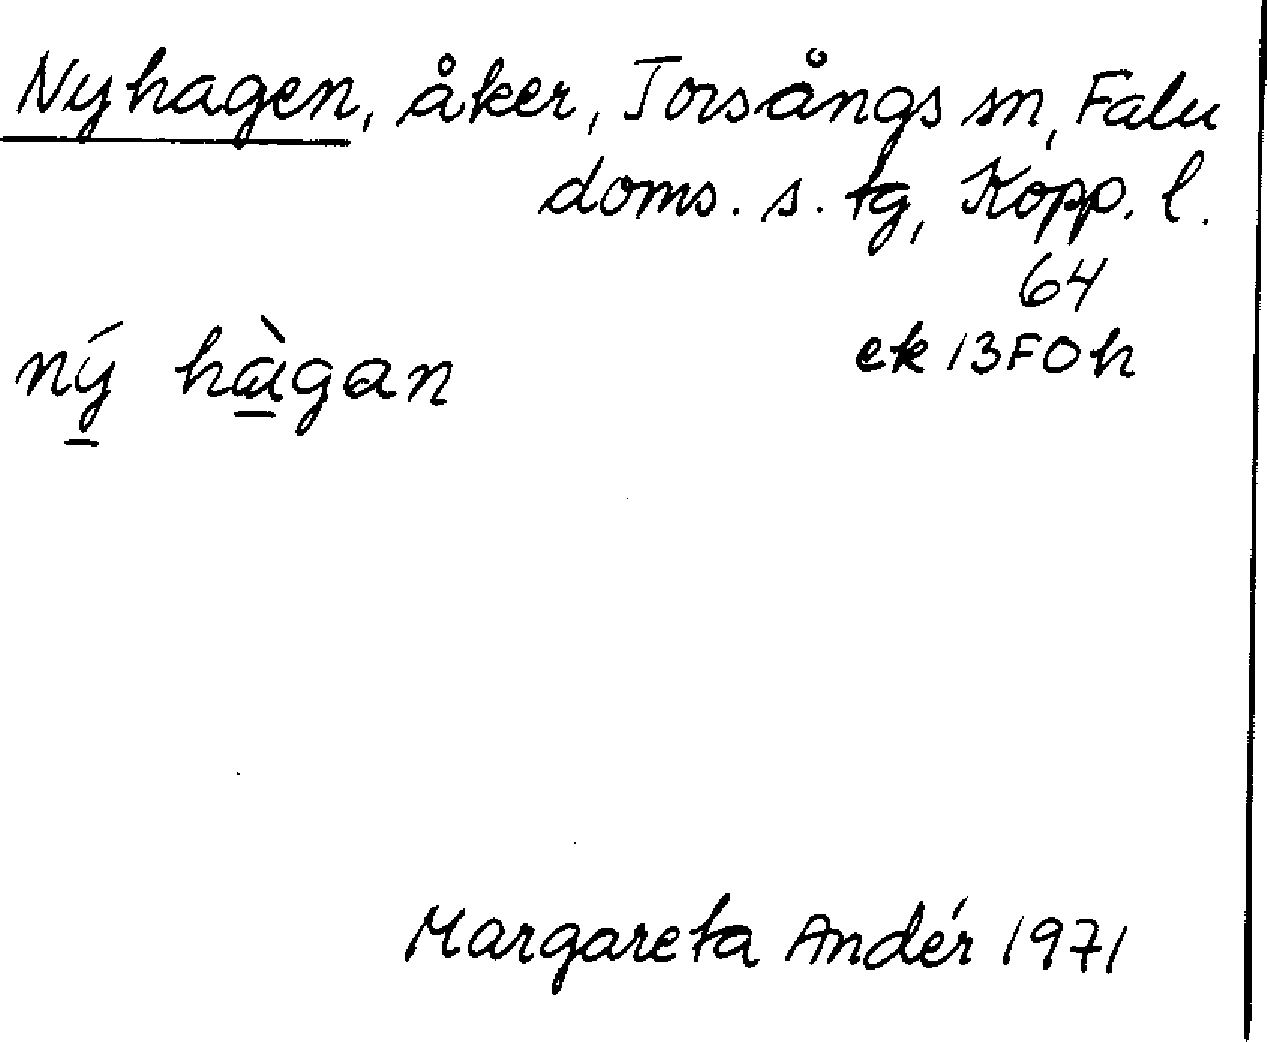 Nyhagen, åker, Torsångs sn, Falu
doms. s. tg, Kopp. l.
64
ný hàgan
ek 13F0h
Margareta Andér 1971